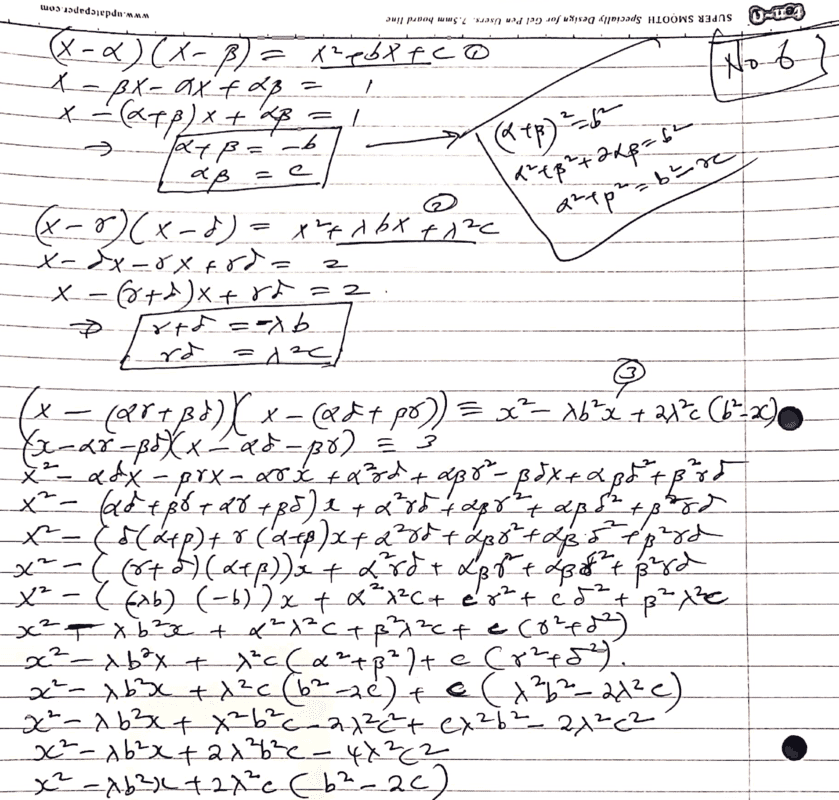 Pen-O
SUPER SMOOTH Specially Design for Gel Pen Users. 7.5mm board line
www.updatepaper.com
No 6
(x-α)(x-β) = x²+bx+c ①
x - βx - αx + αβ = 1
x - (α+β)x + αβ = 1
⇒ α+β = -b
αβ = c
(α+β)² = b²
α²+β²+2αβ = b²
α²+β² = b²-2c
(x-γ)(x-δ) = x²+λbx+λ²c ②
x - δx - γx + γδ = 2
x - (γ+δ)x + γδ = 2.
⇒ γ+δ = -λb
γδ = λ²c
③
(x - (αγ+βδ)(x - (αδ+βγ)) ≡ x² - λb²x + 2λ²c(b²-2c)
(x-αγ-βδ)(x-αδ-βγ) ≡ 3
x² - αδx - βγx - αγx + α²γδ + αβγ² - βδx + αβδ² + β²γδ
x² - (αδ+βγ+αγ+βδ)x + α²γδ + αβγ² + αβδ² + β²γδ
x² - (δ(α+β)+γ(α+β)x + α²γδ + αβγ² + αβδ² + β²γδ
x² - ((γ+δ)(α+β))x + α²γδ + αβγ² + αβδ² + β²γδ
x² - ((-λb)(-b))x + α²λ²c + cγ² + cδ² + β²λ²c
x² - λb²x + α²λ²c + β²λ²c + c(γ²+δ²)
x² - λb²x + λ²c(α²+β²) + c(γ²+δ²).
x² - λb²x + λ²c(b²-2c) + c(λ²b²-2λ²c)
x² - λb²x + λ²b²c - 2λ²c² + cλ²b² - 2λ²c²
x² - λb²x + 2λ²b²c - 4λ²c²
x² - λb²x + 2λ²c(b²-2c)